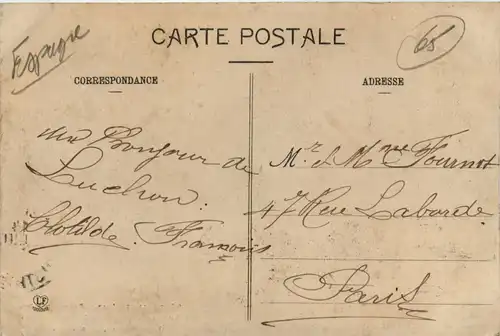 Espagne
CARTE POSTALE
65
CORRESPONDANCE
ADRESSE
un Bonjour de
Luchon.
Clotilde. François
Mr. et Mme Fournot
47 Rue Laborde
Paris
LF